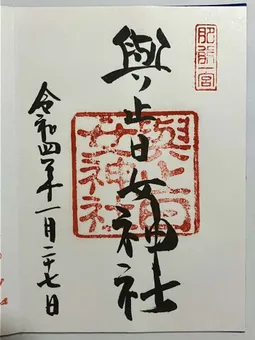 肥前一宮
與止日女神社
與止日女神社
令和四年一月二十七日